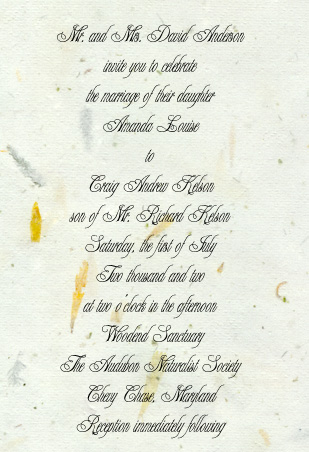 Mr. and Mrs. David Anderson
invite you to celebrate
the marriage of their daughter
Amanda Louise
to
Craig Andrew Kelson
son of Mr. Richard Kelson
Saturday, the first of July
Two thousand and two
at two o'clock in the afternoon
Woodend Sanctuary
The Audubon Naturalist Society
Chevy Chase, Maryland
Reception immediately following